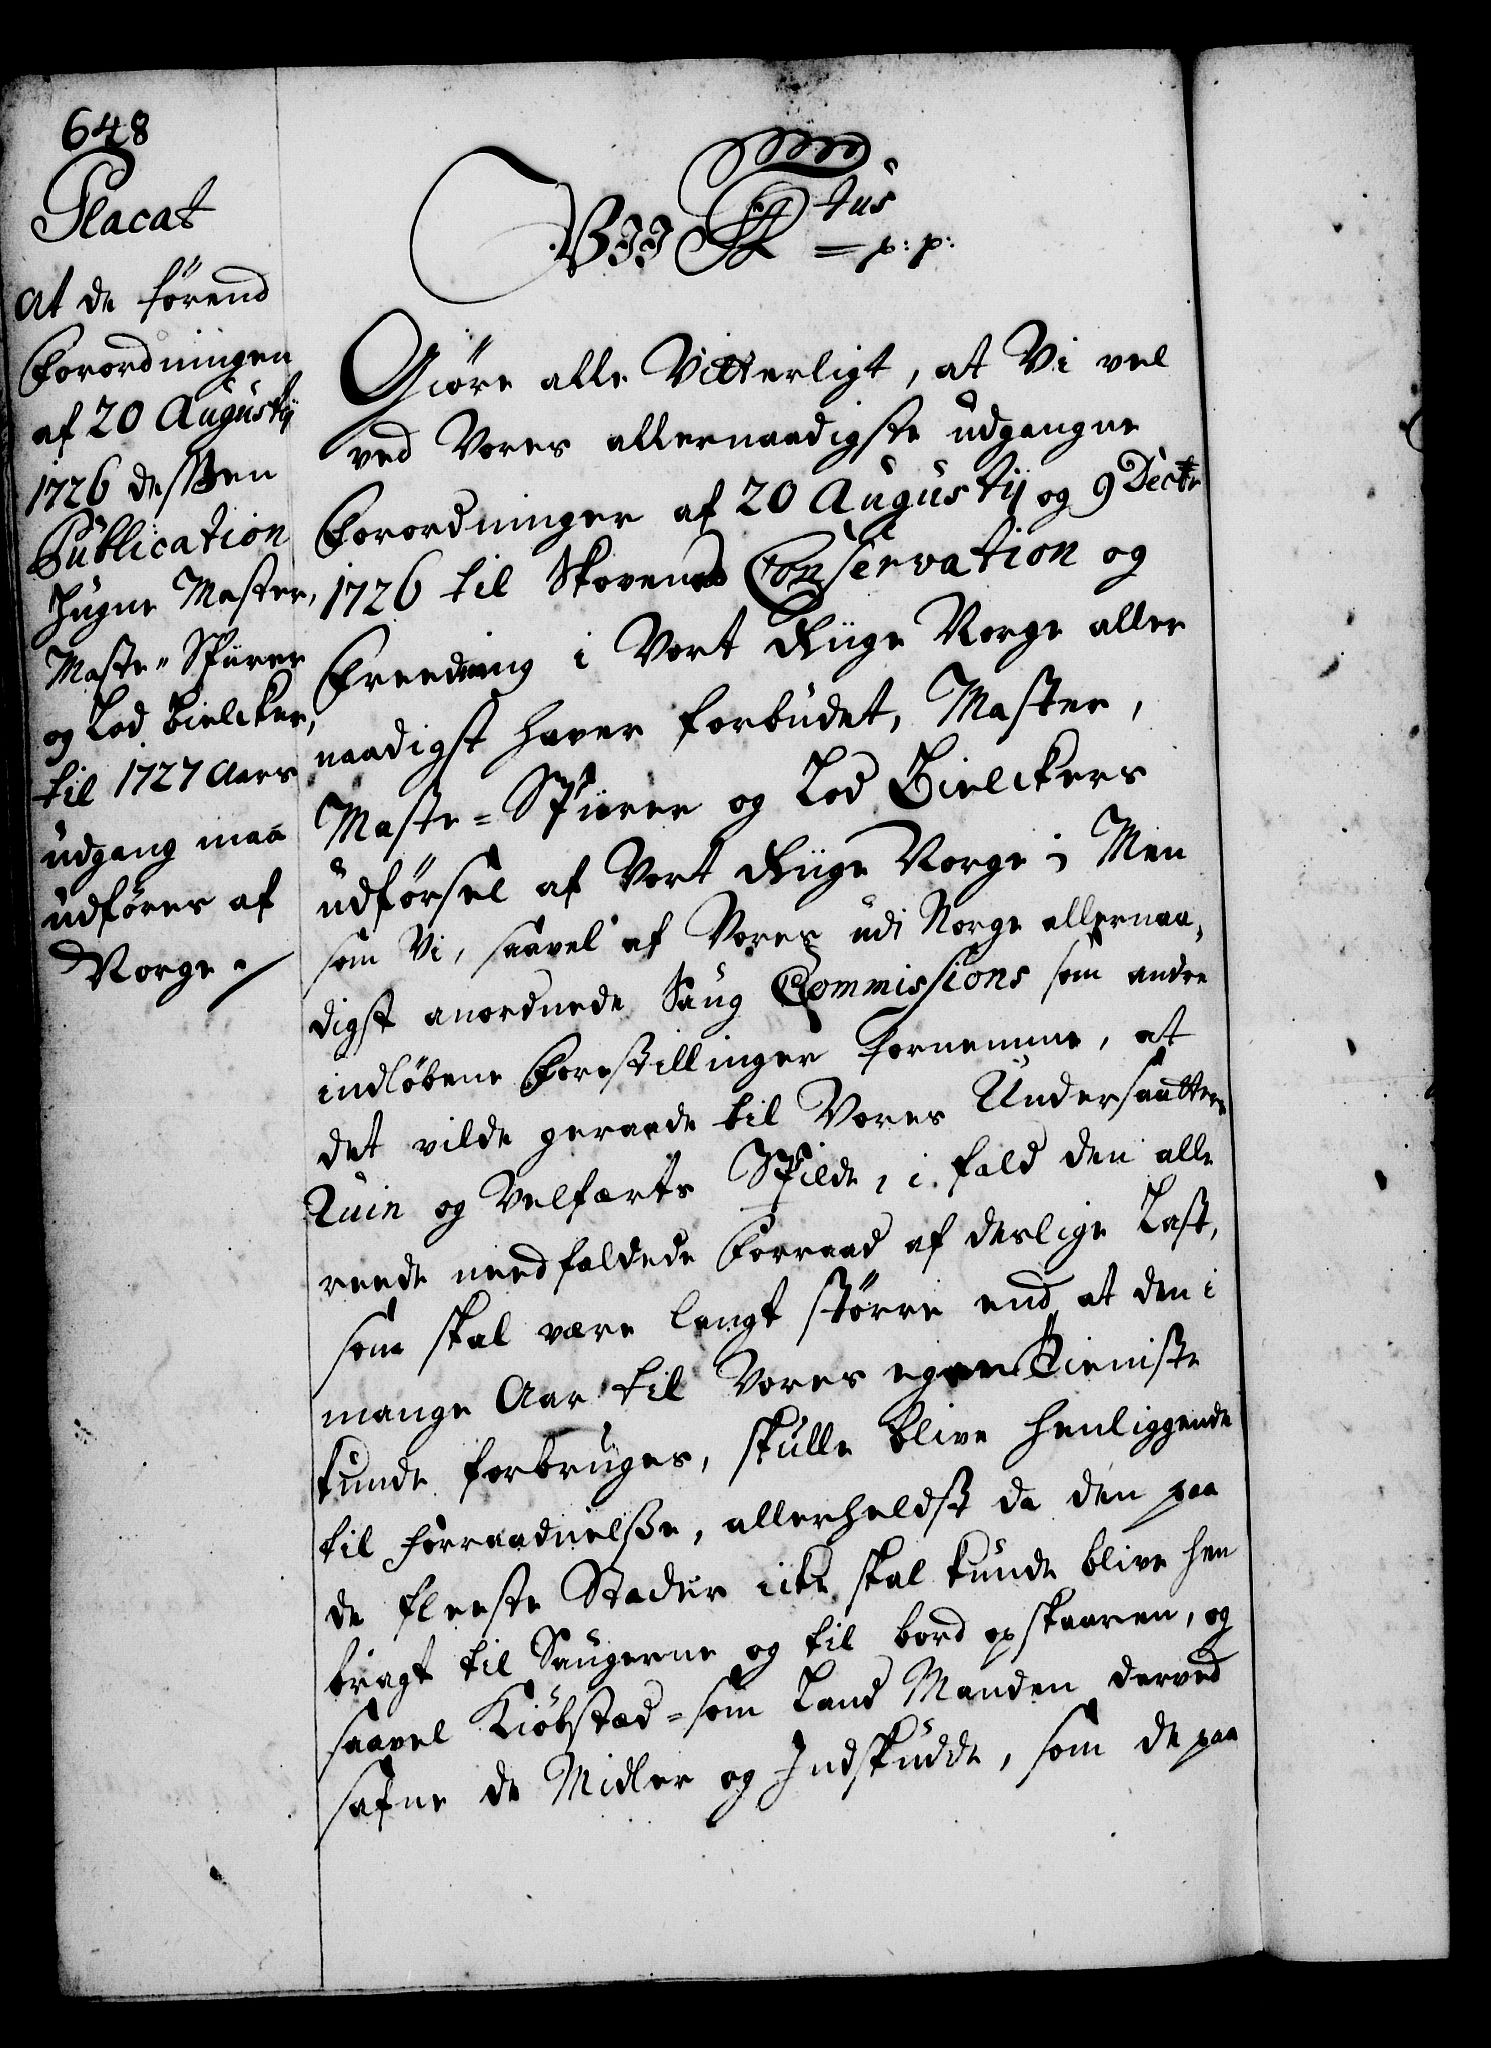 648
Placat
at de førend
Forordningen
af 20 Augustij
1726 dessen
Publication
hugne Master,
Maste-Spirer
og Lod Bielcker,
til 1727 Aars
udgang maa
udføres af
Norge.
VII Fr 4tus
= p: p:
Giøre alle Vitterligt, at Vi vel
ved Vores allernaadigste udgangne
Forordninger af 20 Augustij og 9 Decbr
1726 til Skovenes Conservation og
Freedning i Vort Riige Norge aller
naadigst haver forbudet, Master,
Maste-Spirer og Lod Bielckers
udførsel af Vort Riige Norge; Men
som Vi, saavel af Vores udi Norge allernaa,
digst anordnede Saug Commissions som andre
indløbene Forestillinger fornemme, at
det vilde geraade til Vores Undersaatters
Ruin og Velfærts Spilde, i fald den alle
reede needfældede Forraad af deslige Last,
som skal være langt større end at den i
mange Aar til Vores egen Tieniste
kunde forbruges, skulle blive henliggende
til forraadnelsse, allerheldst da den paa
de fleeste Stæder icke skal kunde blive hen
bragt til Saugerne og til bord opskaaren, og
saavel Kiøbstæd- som Land Manden derved
safne de Midler og Indskudde, som de paa